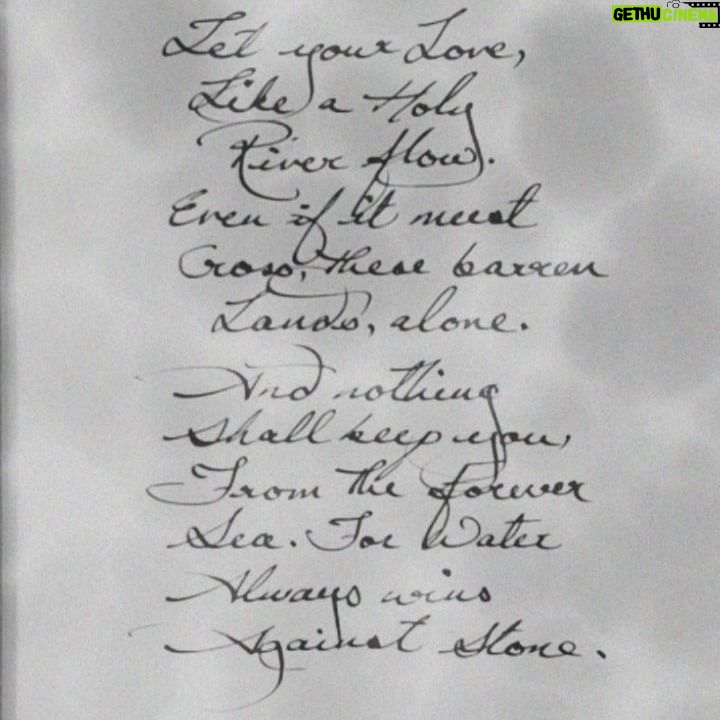 GETHUCINEMA
Let your Love,
Like a Holy
River flow.
Even if it must
Cross, these barren
Lands, alone.
And nothing
Shall keep you,
From the forever
Sea. For Water
Always wins
Against Stone.